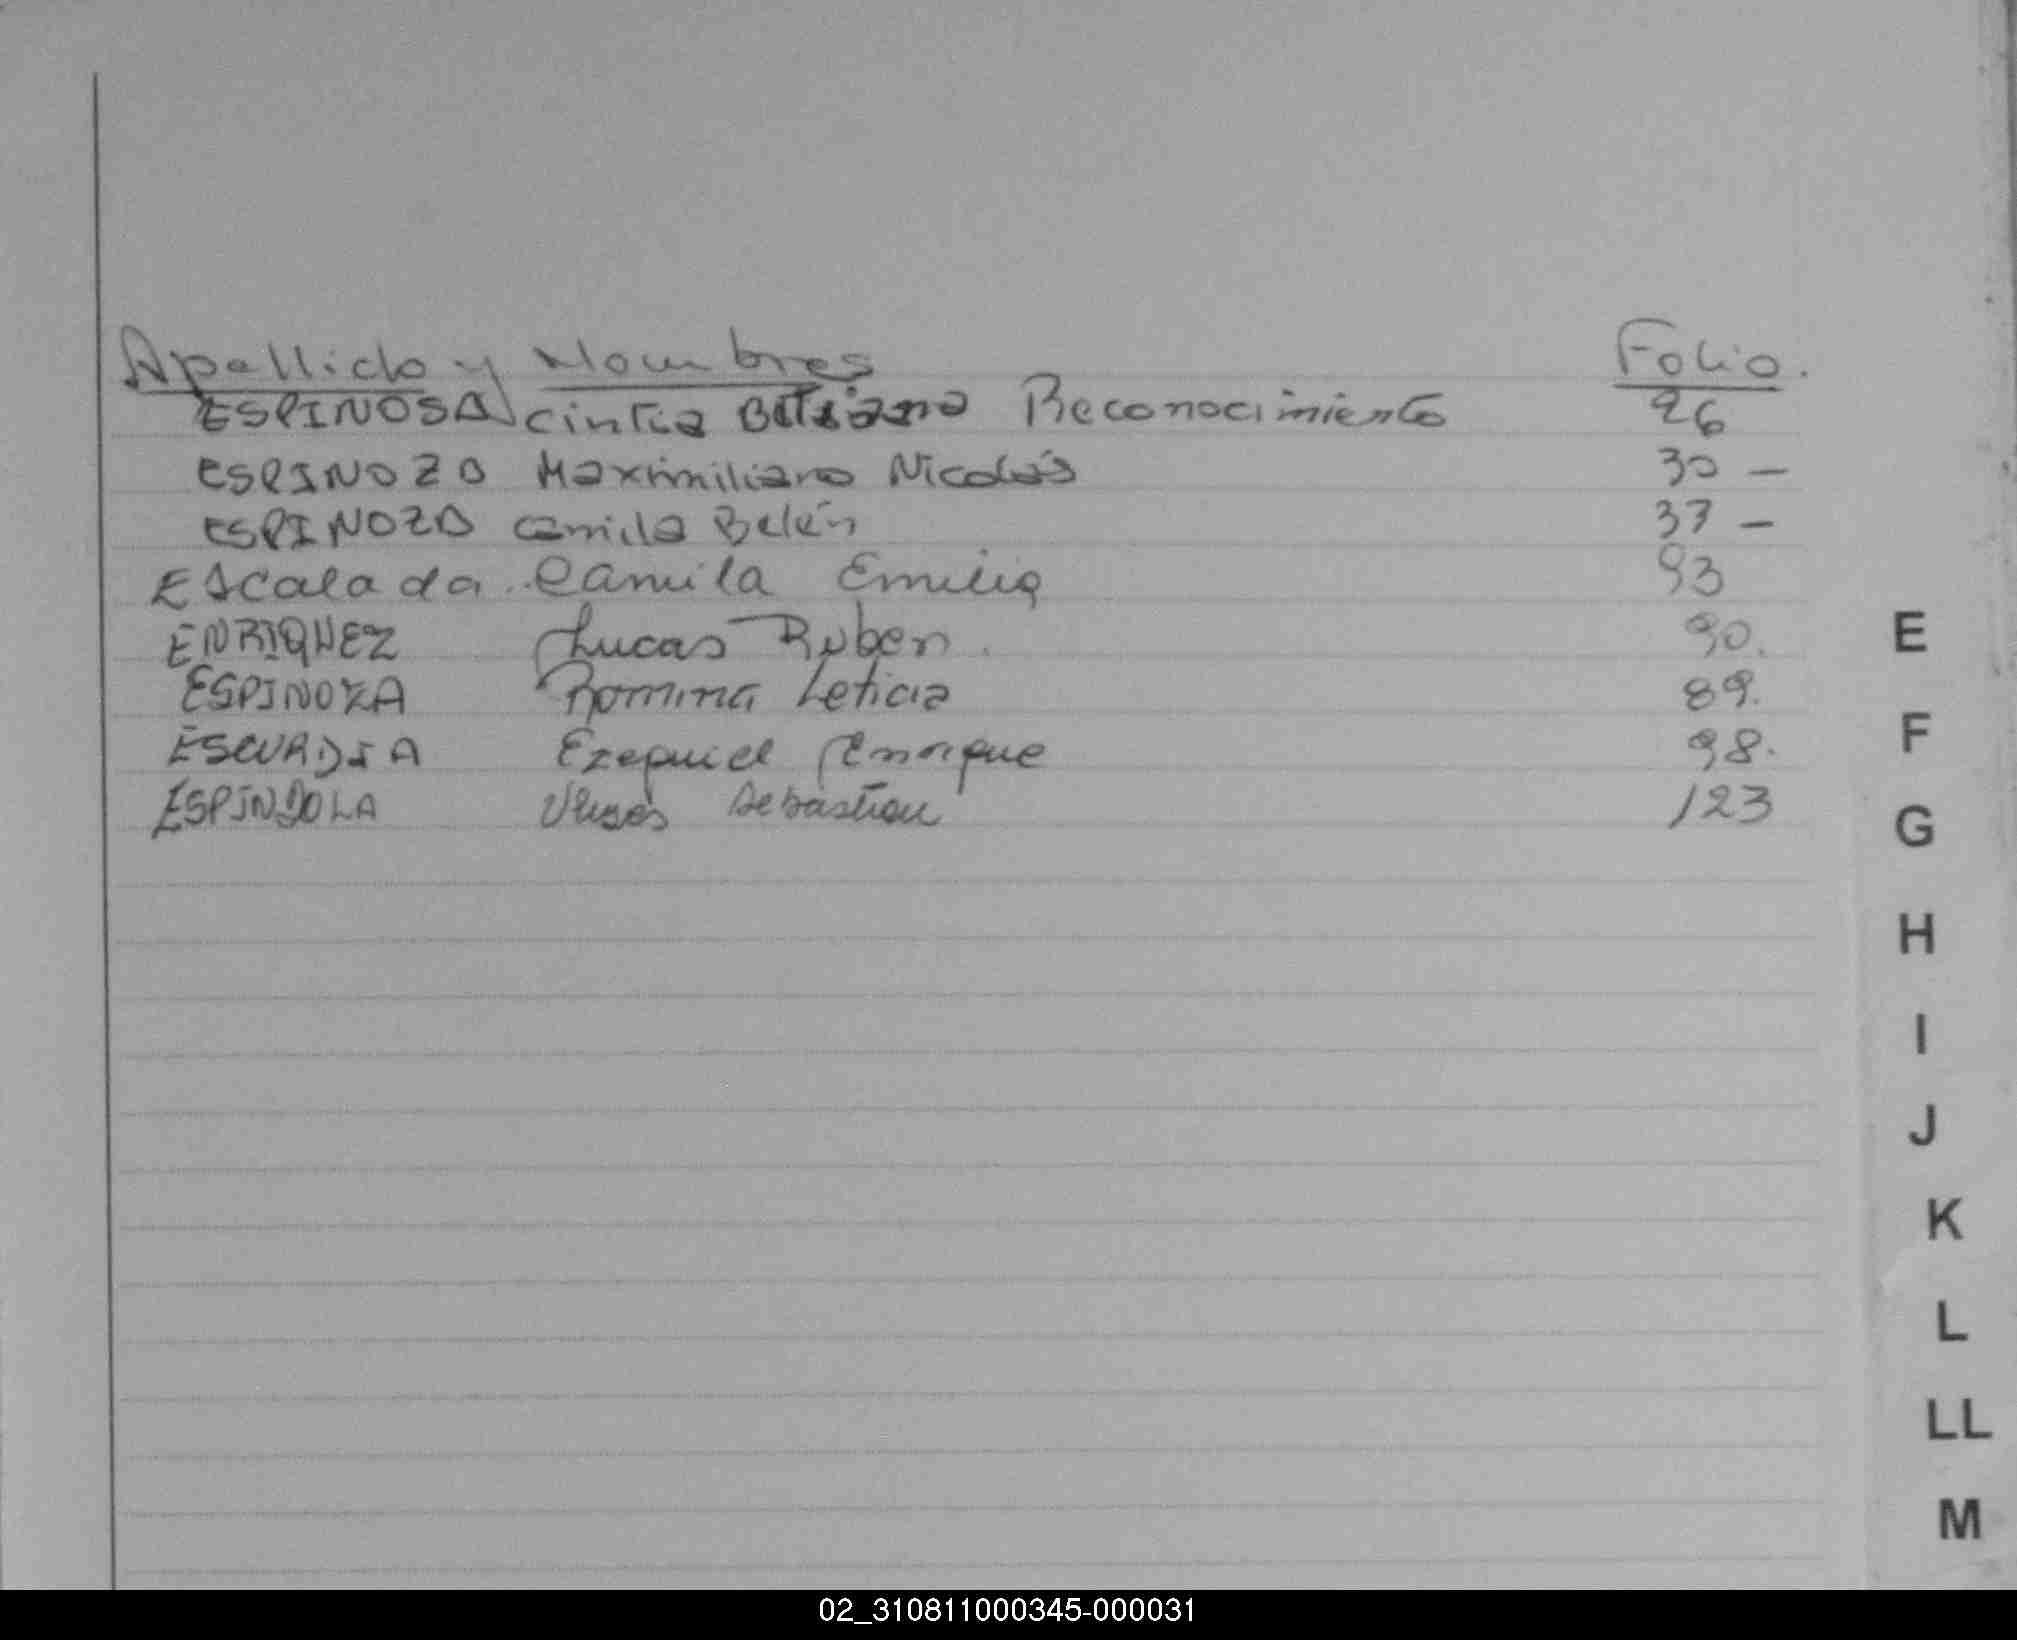 Apellido y Nombres Folio.
ESPINOSA Cintia Reconocimiento 26
ESPINOZA Maximiliano Nicolás 30 –
ESPINOZA Camila Belén 37 –
Escalada Camila Emilia 93
ENRIQUEZ Lucas Ruben. 90.
ESPINOZA Romina Leticia 89.
Ezequiel Enrique 98.
ESPINDOLA Ulises Sebastian 123
E
F
G
H
I
J
K
L
LL
M
02_310811000345-000031